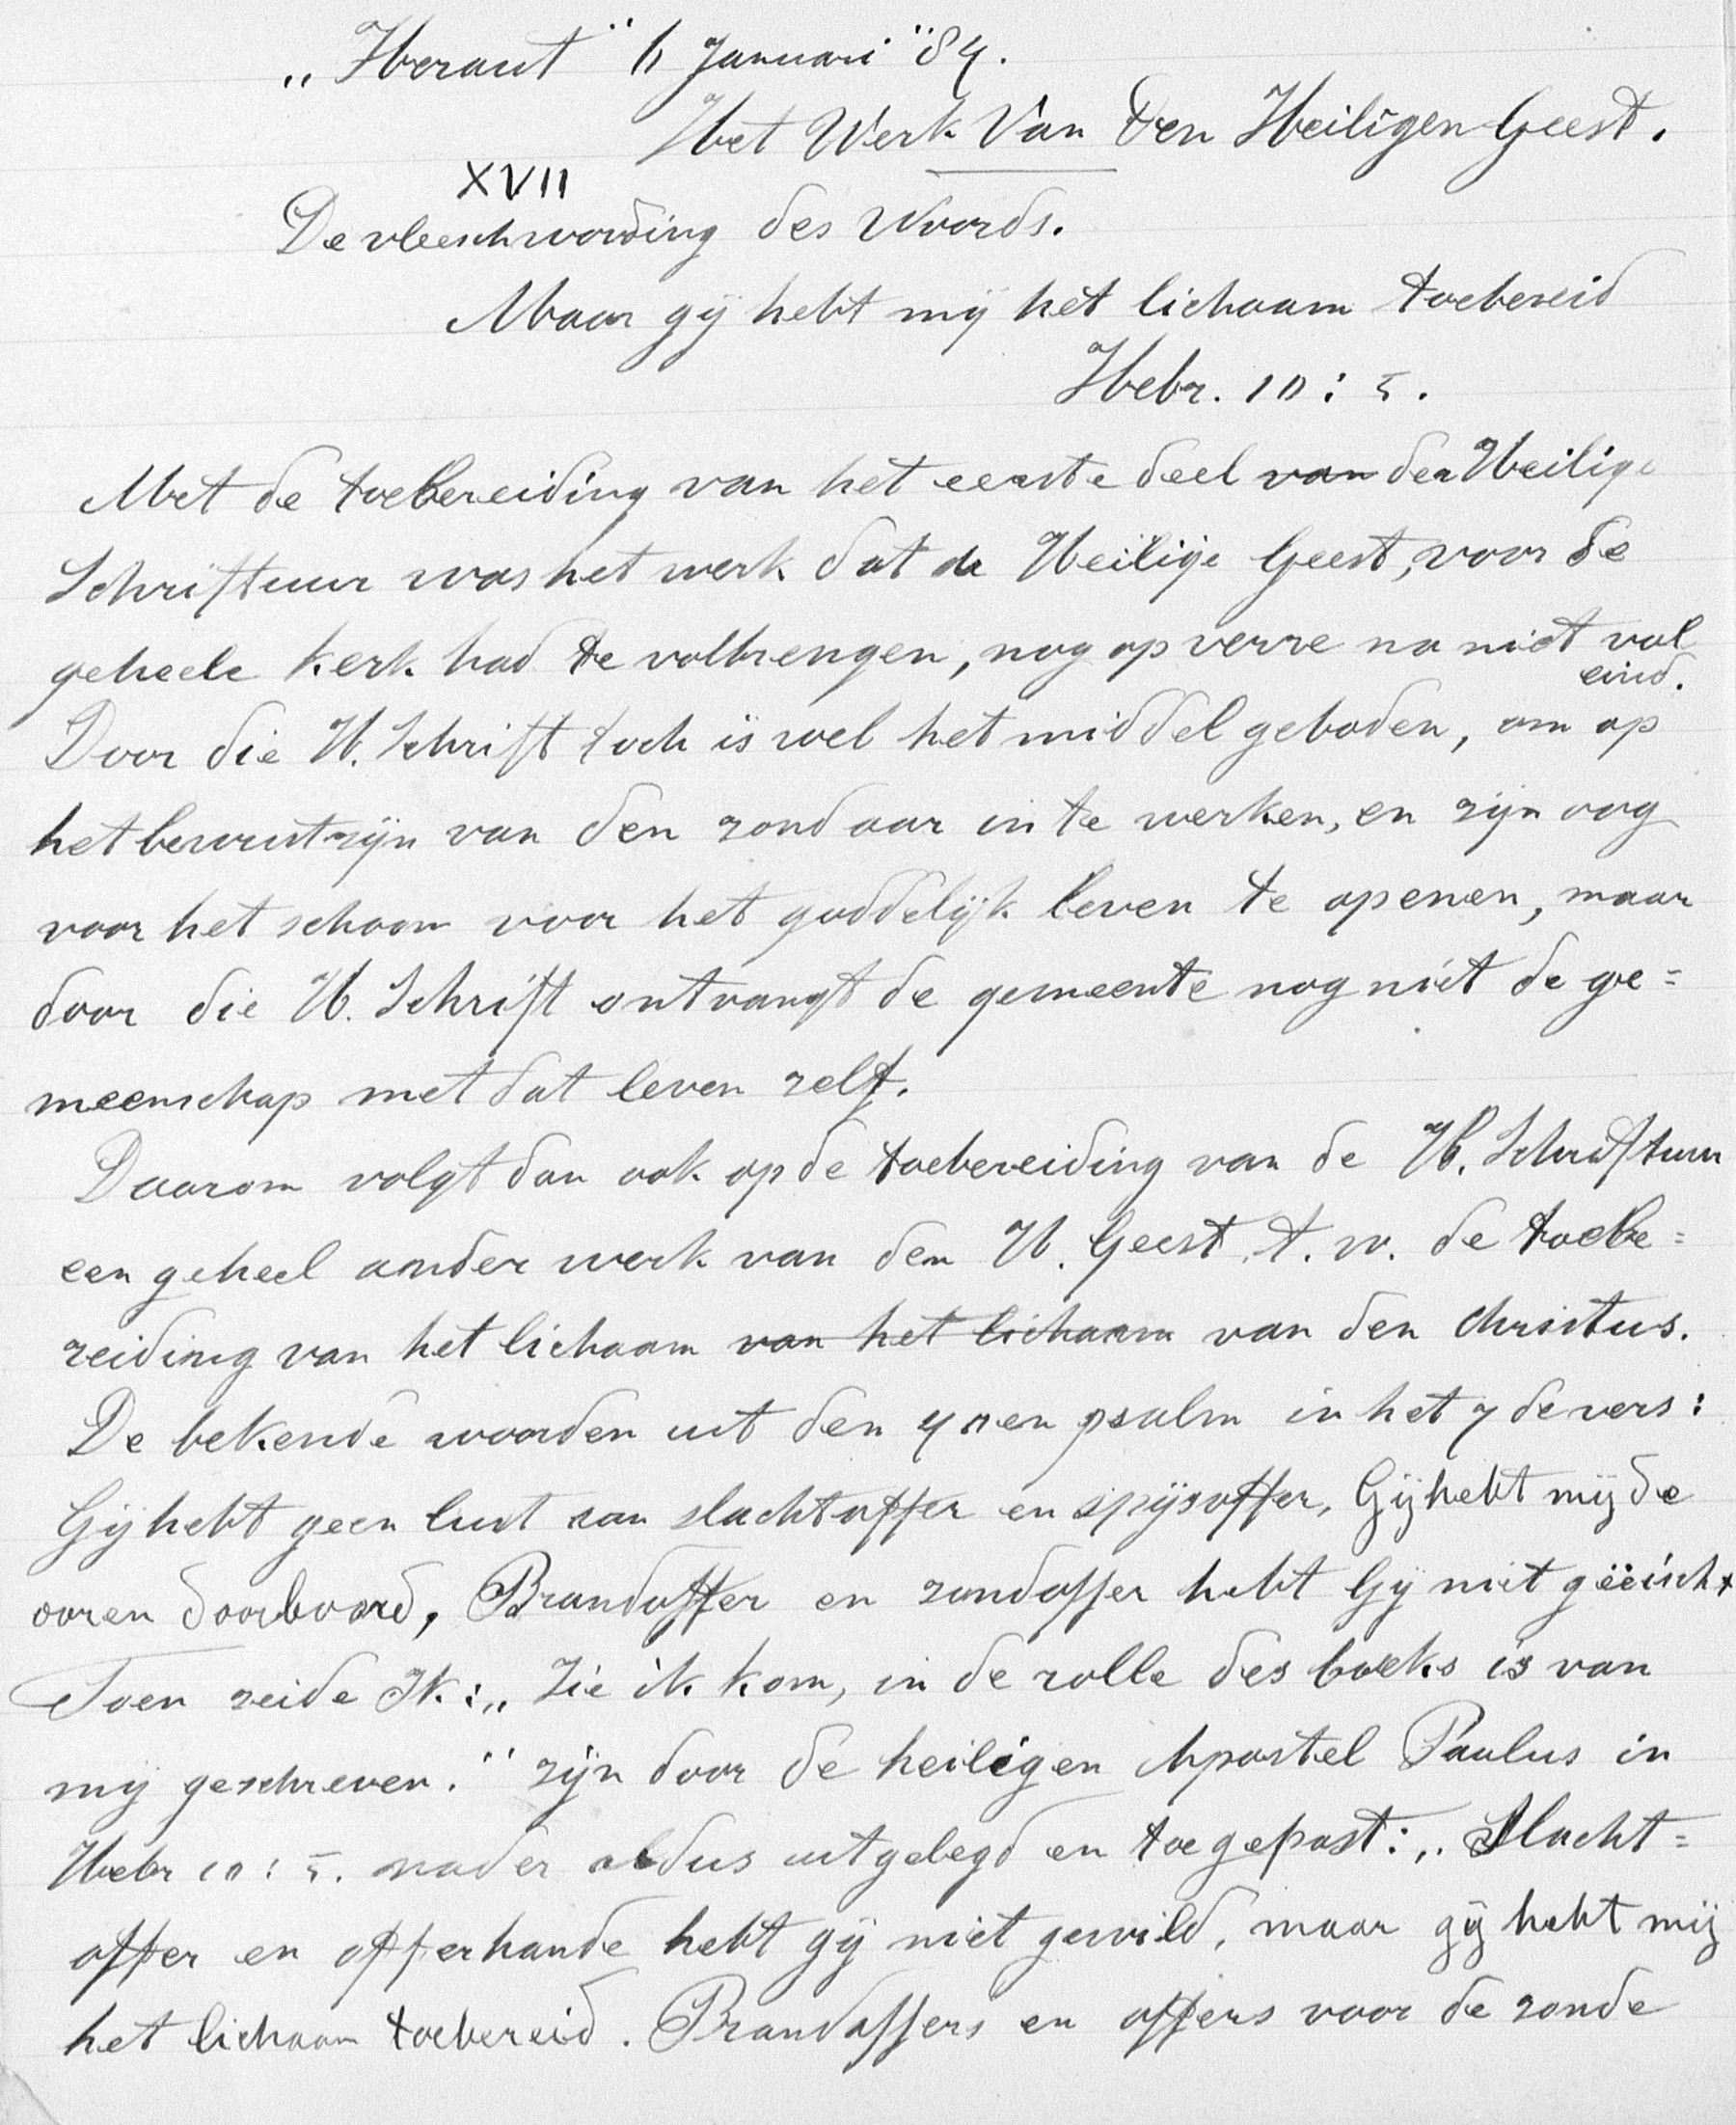 „Heraut" 6 Januari "84.
Het Werk Van Den Heiligen Geest.
XVII
De vleeschwording des Woords.
Maar gij hebt mij het lichaam toebereid
Hebr. 10 : 5.
Met de toebereiding van het eerste deel ~~van~~ der Heilige
Schriftuur was het werk dat de Heilige Geest, voor de
geheele kerk had te volbrengen, nog op verre na niet vol
eind.
Door die H. Schrift toch is wel het middel geboden, om op
het bewustzijn van den zondaar in te werken, en zijn oog
voor het schoon voor het goddelijk leven te openen, maar
door die H. Schrift ontvangt de gemeente nog niet de ge=
meenschap met dat leven zelf.
Daarom volgt dan ook op de toebereiding van de H. Schriftuur
een geheel ander werk van den H. Geest, t. w. de toebe=
reiding van het lichaam ~~van het lichaam~~ van den Christus.
De bekende woorden uit den 40en psalm in het 7de vers:
Gij hebt geen lust aan slachtoffer en spijsoffer, Gij hebt mij de
ooren doorboord, Brandoffer en zondoffer hebt Gij niet geëischt
Toen zeide Ik: „Zie ik kom, in de rolle des boeks is van
mij geschreven." zijn door de heiligen Apostel Paulus in
Hebr 10 : 5. nader aldus uitgelegd en toegepast: „Slacht=
offer en offerhande hebt gij niet gewild, maar gij hebt mij
het lichaam toebereid. Brandoffers en offers voor de zonde